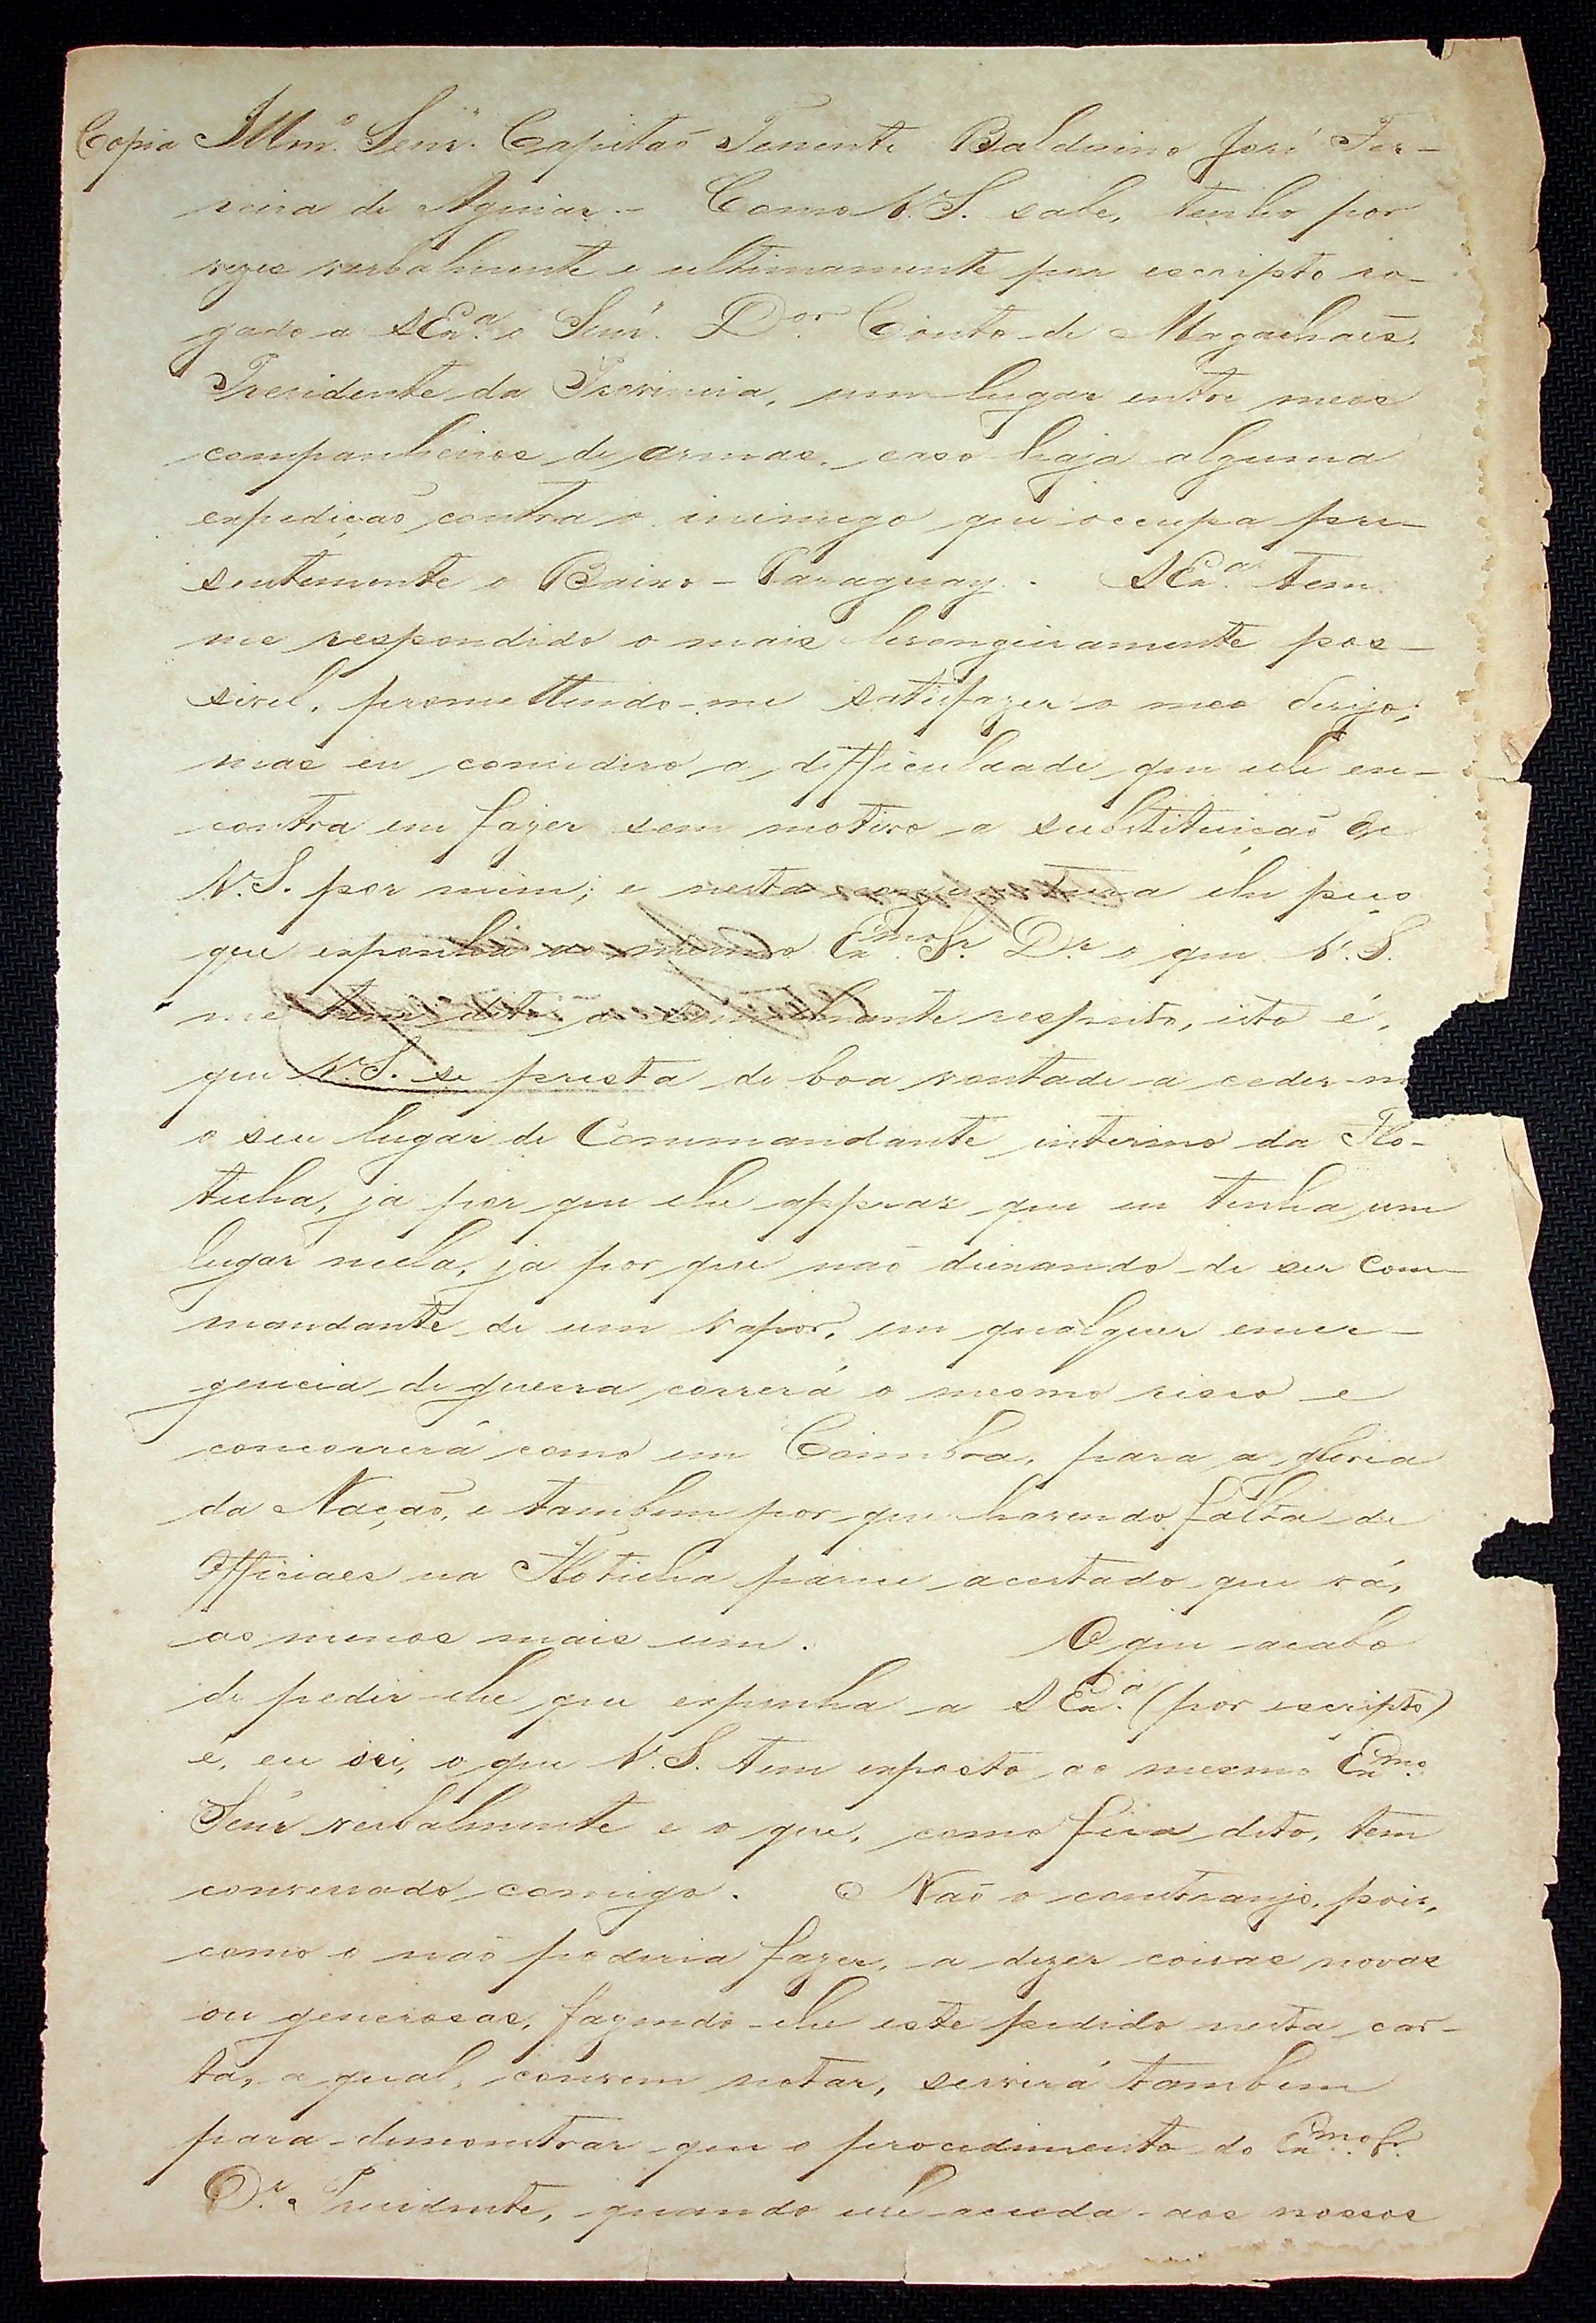 Copia Illmº Senr. Capitão Tenente Balduino José Fer-
reira de Aguiar.- Como V.S. sabe, tenho por
vezes verbalmente e ultimamente por escripto ro-
gado a S Exª o Senr. Dor Couto de Magalhães.
Presidente da Provincia, um lugar entre meos
companheiros de armas, caso haja alguma
expedição contra o inimigo que occupa pre-
sentemente o Baixo-Paraguay. S Exª tem
me respondido o mais lisongeiramente pos-
sivel, promettendo-me satisfazer o meo dezejo;
mas eu considero a difficuldade que elle en-
contra em fazer sem motivo a substituição de
V.S. por mim; e nesta conjunctura lhe peço
que exponha ao mesmo Exmo Sr. Dr o que V.S.
me tem dito a similhante respeito, isto é,
que V.S. se presta de boa vontade a ceder-m
o seu lugar de Commandante interino da Flo-
tilha, ja por que lhe appraz que eu tenha um
lugar nella, ja por que não deixando de ser Com-
mandante de um vapor, em qualquer emer-
gencia de guerra correrá o mesmo risco e
concorrerá como em Coimbra, para a gloria
da Nação, e tambem por que havendo falta de
Officiaes na Flotilha parece acertado que vá,
ao menos mais um. O que acabo
de pedir-lhe que exponha a S Exª (por escripto)
é, eu sei, o que V.S. tem exposto ao mesmo Exmo
Senr verbalmente e o que, como fica dito, tem
conversado comigo. Não o constranjo, pois,
como o não poderia fazer, a dizer cousas novas
ou generosas, fazendo-lhe este pedido nesta car-
ta, a qual, convem notar, servirá tambem
para demonstrar que o procedimento do Exmo Sr.
Dr Presidente, quando elle acceda aos nossos